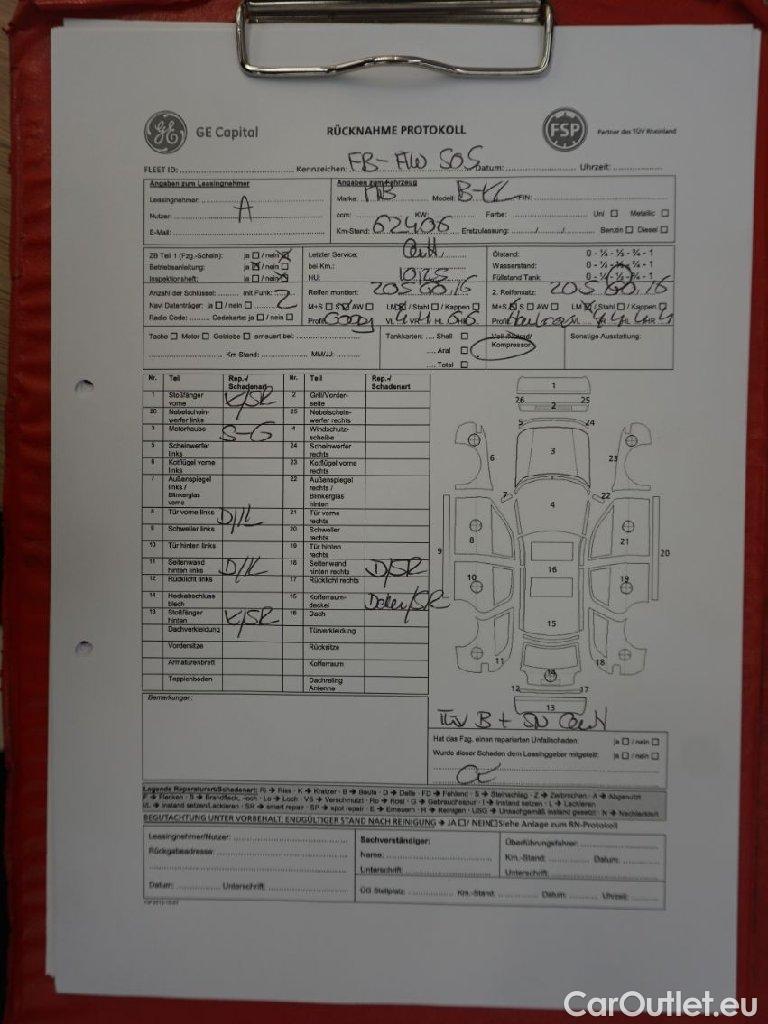 GE Capital
RÜCKNAHME PROTOKOLL
FSP
Partner des TÜV Rheinland
FLEET ID: Kennzeichen: FB-AW 505 Datum: Uhrzeit:
Angaben zum Leasingnehmer
Leasingnehmer: A
Nutzer:
E-Mail:
Angaben zum Fahrzeug
Marke: MB Modell: B-KL FIN:
ccm: KW: Farbe: Uni Metallic
Km-Stand: 62406 Erstzulassung: Benzin Diesel
ZB Teil 1 (Fzg.-Schein): ja / nein
Betriebsanleitung: ja / nein
Inspektionsheft: ja / nein
Anzahl der Schlüssel: mit Funk: 2
Navi Datenträger: ja / nein
Radio Code: Codekarte ja / nein
Letzter Service:
bei Km.:
HU: 10.25
Reifen montiert: 205 60.16
M+S S AW LM / Stahl / Kappen
Profil: VL 4 VR 4 HL 6 HR 6
Ölstand: 0 - ¼ - ½ - ¾ - 1
Wasserstand: 0 - ¼ - ½ - ¾ - 1
Füllstand Tank: 0 - ¼ - ½ - ¾ - 1
2. Reifensatz: 205 60.16
M+S S AW LM / Stahl / Kappen
Tacho Motor Getriebe erneuert bei:
Km Stand: MM/JJ
Tankkarten: Shell
Aral
Total
Voll-/Notrad/
Kompressor
Sonstige Ausstattung:
Nr. Teil Rep.-/Schadenart Nr. Teil Rep.-/Schadenart
1 Stoßfänger vorne K/SR 2 Grill/Vorderseite
Nebelscheinwerfer links Nebelscheinwerfer rechts
3 Motorhaube S-G 4 Windschutzscheibe
5 Scheinwerfer links 24 Scheinwerfer rechts
6 Kotflügel vorne links 23 Kotflügel vorne rechts
7 Außenspiegel links / Blinkerglas vorne 22 Außenspiegel rechts / Blinkerglas hinten
8 Tür vorne links D/L 21 Tür vorne rechts
9 Schweller links 20 Schweller rechts
10 Tür hinten links 19 Tür hinten rechts
11 Seitenwand hinten links D/L 18 Seitenwand hinten rechts D/SR
12 Rücklicht links 17 Rücklicht rechts
14 Heckabschlussblech 15 Kofferraumdeckel Dellen/SR
13 Stoßfänger hinten K/SR 16 Dach
Dachverkleidung Türverkleidung
Vordersitze Rücksitze
Armaturenbrett Kofferraum
Teppichboden Dachreling Antenne
1
26 2 25
5 24
6 3 23
7 22
4
8 21
9 20
10 16 19
15
11 18
14
12 17
13
Bemerkungen:
TÜV B + SN
Hat das Fzg. einen reparierten Unfallschaden: ja / nein
Wurde dieser Schaden dem Leasinggeber mitgeteilt: ja / nein
Legende Reparaturart/Schadenart: Ri → Riss - K → Kratzer - B → Beule - D → Delle - FD → Fehlend - S → Steinschlag - Z → Zerbrochen - A → Abgenutzt
F → Flecken - B → Brandfleck, -loch - Lo → Loch - VS → Verschmutzt - Ro → Rost - G → Gebrauchsspur - I → Instand setzen - L → Lackieren
I/L → Instand setzen/Lackieren - SR → smart repair - SP → spot repair - E → Erneuern - H → Reinigen - USG → Unsachgemäß instand gesetzt - N → Nachlackiert
BEGUTACHTUNG UNTER VORBEHALT. ENDGÜLTIGER STAND NACH REINIGUNG → JA / NEIN Siehe Anlage zum RN-Protokoll
Leasingnehmer/Nutzer:
Rückgabeadresse:
Datum: Unterschrift:
Sachverständiger:
Name:
Unterschrift:
Überführungsfahrer:
Km.-Stand: Datum:
Unterschrift:
ÜG Stellplatz: Km.-Stand: Datum: Uhrzeit:
CarOutlet.eu